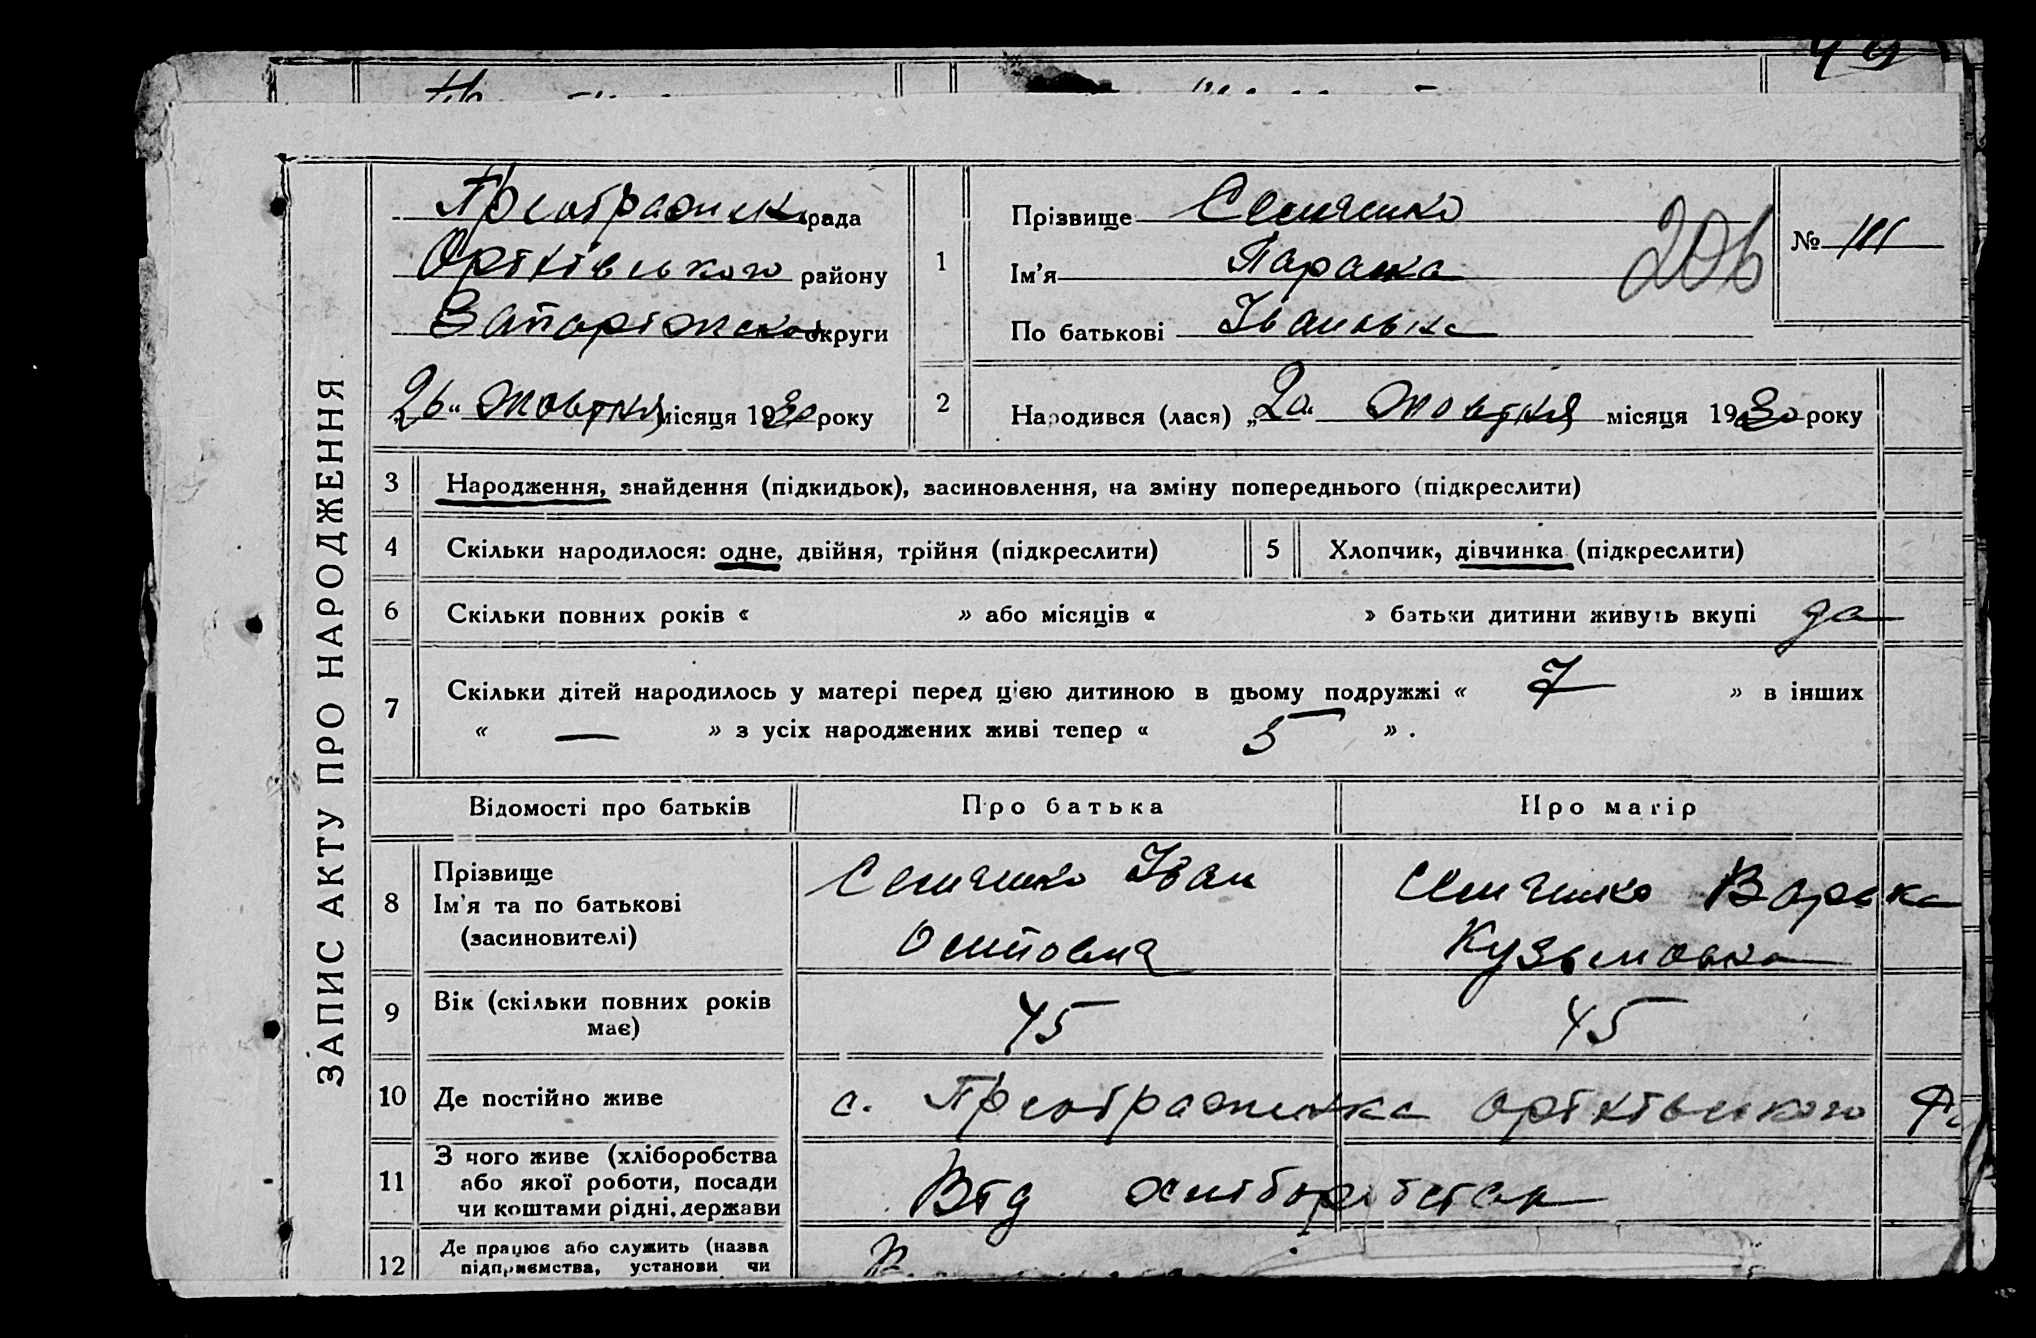 ЗАПИС АКТУ ПРО НАРОДЖЕННЯ
Преображенська рада
Оріхівського району
Запоріжської округи
„26“ Жовтня місяця 1930 року
1
Прізвище
Ім’я Параска
По батькові Івановна
№ 111
206
2 Народився (лася) „20“ Жовтня місяця 1930 року
3 Народження, знайдення (підкидьок), засиновлення, на зміну попереднього (підкреслити)
4 Скільки народилося: одне, двійня, трійня (підкреслити) 5 Хлопчик, дівчинка (підкреслити)
6 Скільки повних років « » або місяців « » батьки дитини живуть вкупі да
7 Скільки дітей народилось у матері перед цією дитиною в цьому подружжі « 7 » в інших
« — » з усіх народжених живі тепер « 5 » .
Відомості про батьків Про батька Про матір
8 Прізвище
Ім’я та по батькові
(засиновителі)
Іван
Варька
Кузьмовна
9 Вік (скільки повних років має) 45 45
10 Де постійно живе с. Преображенка Оріхівського
11 З чого живе (хліборобства
або якої роботи, посади
чи коштами рідні, держави
Від хліборобства
12 Де працює або служить (назва
підприємства, установи чи